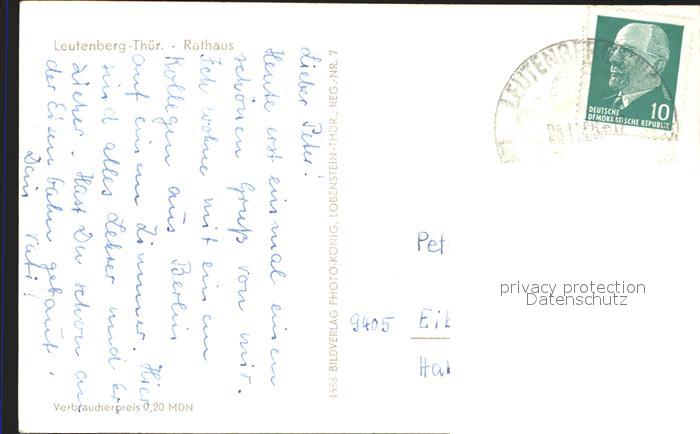 Leutenberg-Thür. - Rathaus
Lieber Peter!
Heute erst einmal einen
schönen Gruß von mir.
Ich wohne mit einem
Kollegen aus Berlin
auf einem Zimmer. Hier
sind alles Lehrer und Er
zieher. Hast Du schon an
der Eisenbahn gebaut.
Dein Vati!
Verbraucherpreis 0,20 MDN
1588 BILDVERLAG PHOTO-KÖNIG, LOBENSTEIN-THÜR. REG.-NR. 7
LEUTENBERG
DEUTSCHE
DEMOKRATISCHE REPUBLIK
10
Pet
9405 Eib
Ha
privacy protection
Datenschutz